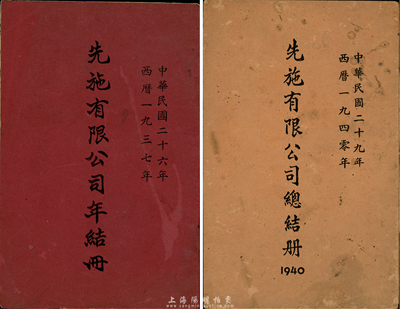 中華民國二十六年
西曆一九三七年
先施有限公司年結冊
中華民國二十九年
西曆一九四零年
先施有限公司總結册
1940
上海陽明拍賣